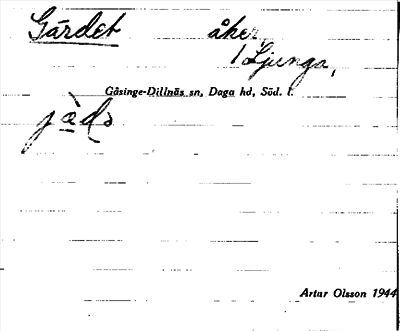 Gärdet åker
/ Ljunga,
Gåsinge-Dillnäs sn, Daga hd, Söd. l.
jà̱ḍs
Artur Olsson 1944